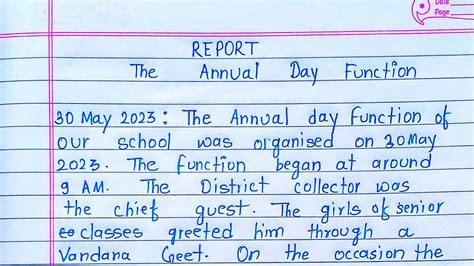 Date
Page
REPORT
The Annual Day Function
30 May 2023 : The Annual day function of
our school was organised on 30 May
2023. The function began at around
9 AM. The District collector was
the chief guest. The girls of senior
classes greeted him through a
Vandana Geet. On the occasion the